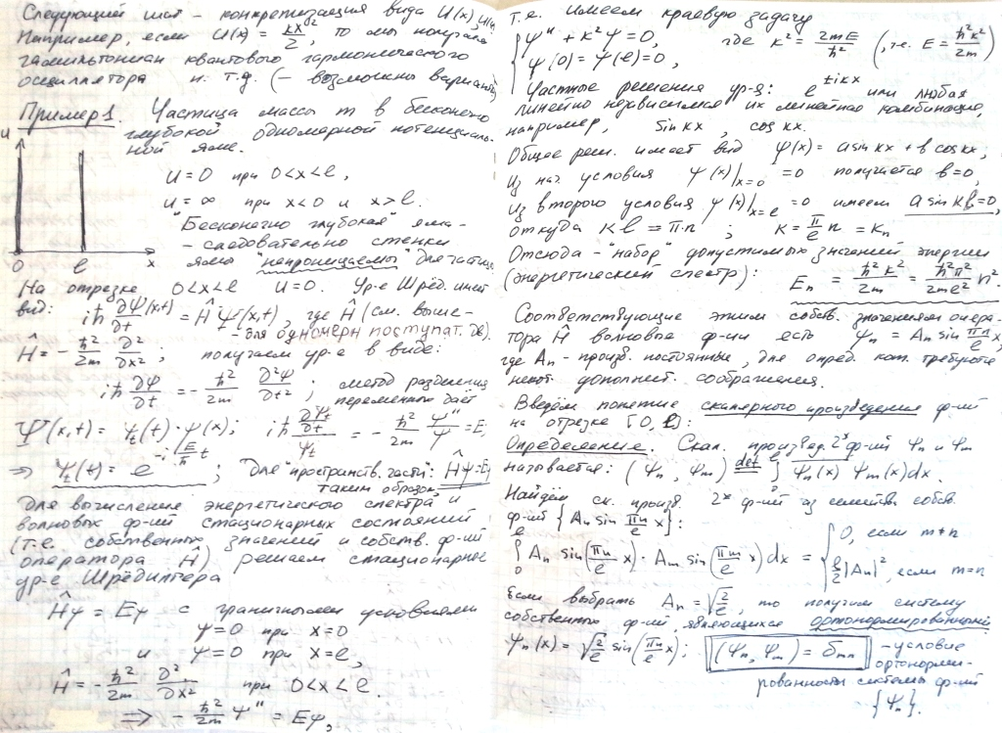 Следующий шаг – конкретизация вида U(x),
Например, если U(x) = kx²/2, то мы получаем
гамильтониан квантового гармонического
осциллятора и т.д. (– возможны варианты)
Пример 1. Частица массы m в бесконечно
глубокой одномерной потенциаль-
ной яме.
U
0 l x
U=0 при 0<x<l,
U=∞ при x<0 и x>l.
"Бесконечно глубокая" яма –
– следовательно стенки
ямы "непроницаемы" для частиц
На отрезке 0<x<l U=0. Ур-е Шрёд. имеет
вид: iħ ∂Ψ(x,t)/∂t = ĤΨ(x,t), где Ĥ (см. выше –
– для одномерн поступат. дв.)
Ĥ = –ħ²/2m ∂²/∂x² ; получаем ур-е в виде:
iħ ∂Ψ/∂t = –ħ²/2m ∂²Ψ/∂t² ; метод разделения
переменных даёт
Ψ(x,t) = ψₜ(t)·ψ(x); iħ (∂ψₜ/∂t)/ψₜ = –ħ²/2m ψ''/ψ = E;
⇒ ψₜ(t) = e^(–i E/ħ t) ; Для "пространств. части": Ĥψ=E
таким образом,
Для вычисления энергетического спектра и
волновых ф-ий стационарных состояний
(т.е. собственных значений и собств. ф-ий
оператора Ĥ) решаем стационарные
ур-е Шрёдингера
Ĥψ = Eψ с граничными условиями
ψ=0 при x=0
и ψ=0 при x=l,
Ĥ = –ħ²/2m ∂²/∂x² при 0<x<l.
⇒ –ħ²/2m ψ'' = Eψ,
т.е. имеем краевую задачу
{ψ'' + k²ψ = 0, где k² = 2mE/ħ² (т.е. E = ħ²k²/2m)
ψ(0) = ψ(l) = 0,
Частные решения ур-я: e^(±ikx) или любая
линейно независимая их линейная комбинация,
например, sin kx, cos kx.
Общее реш. имеет вид ψ(x) = a sin kx + b cos kx,
Из нач. условия ψ(x)|x=0 = 0 получается b=0,
Из второго условия ψ(x)|x=l = 0 имеем a sin kl=0,
откуда kl = π·n ; k = π/l n = kₙ
Отсюда – "набор" допустимых значений энергии
(энергетический спектр): Eₙ = ħ²k²/2m = ħ²π²/2ml² n².
Соответствующие этим собств. значениям опера-
тора Ĥ волновые ф-ии есть ψₙ = Aₙ sin πn/l x,
где Aₙ – произв. постоянные, для опред. кот. требуются
некот. дополнит. соображения.
Введём понятие скалярного произведения ф-ий
на отрезке [0, l]:
Определение. Скал. произвед. 2ˣ ф-ий ψₙ и ψₘ
называется: (ψₙ, ψₘ) def= ∫ ψₙ(x) ψₘ(x)dx.
Найдём ск. произв. 2ˣ ф-ий из семейства собств.
ф-ий {Aₙ sin πn/l x}:
∫₀ˡ Aₙ sin(πn/l x)·Aₘ sin(πm/l x)dx = {0, если m≠n
l/2|Aₙ|², если m=n
Если выбрать Aₙ = √(2/l), то получим систему
собственных ф-ий, являющихся ортонормированной
ψₙ(x) = √(2/l) sin(πn/l x); (ψₙ, ψₘ) = δₘₙ – условие
ортонорми-
рованности системы ф-ий
{ψₙ}.